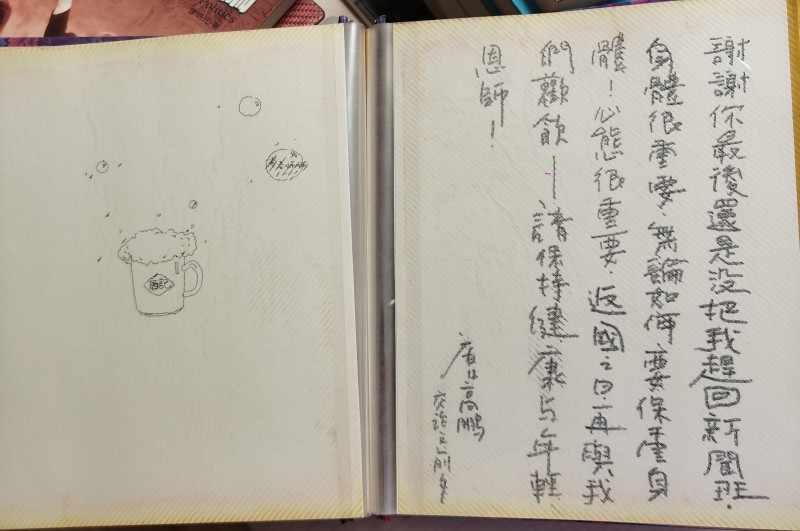 謝謝你最後還是没把我趕回新聞班.
身體很重要.無論如何要保重身
體!心態很重要.返國之日再與我
們歡飲——請保持健康與年輕.
恩師!
唐高鵬
酒記
Politics